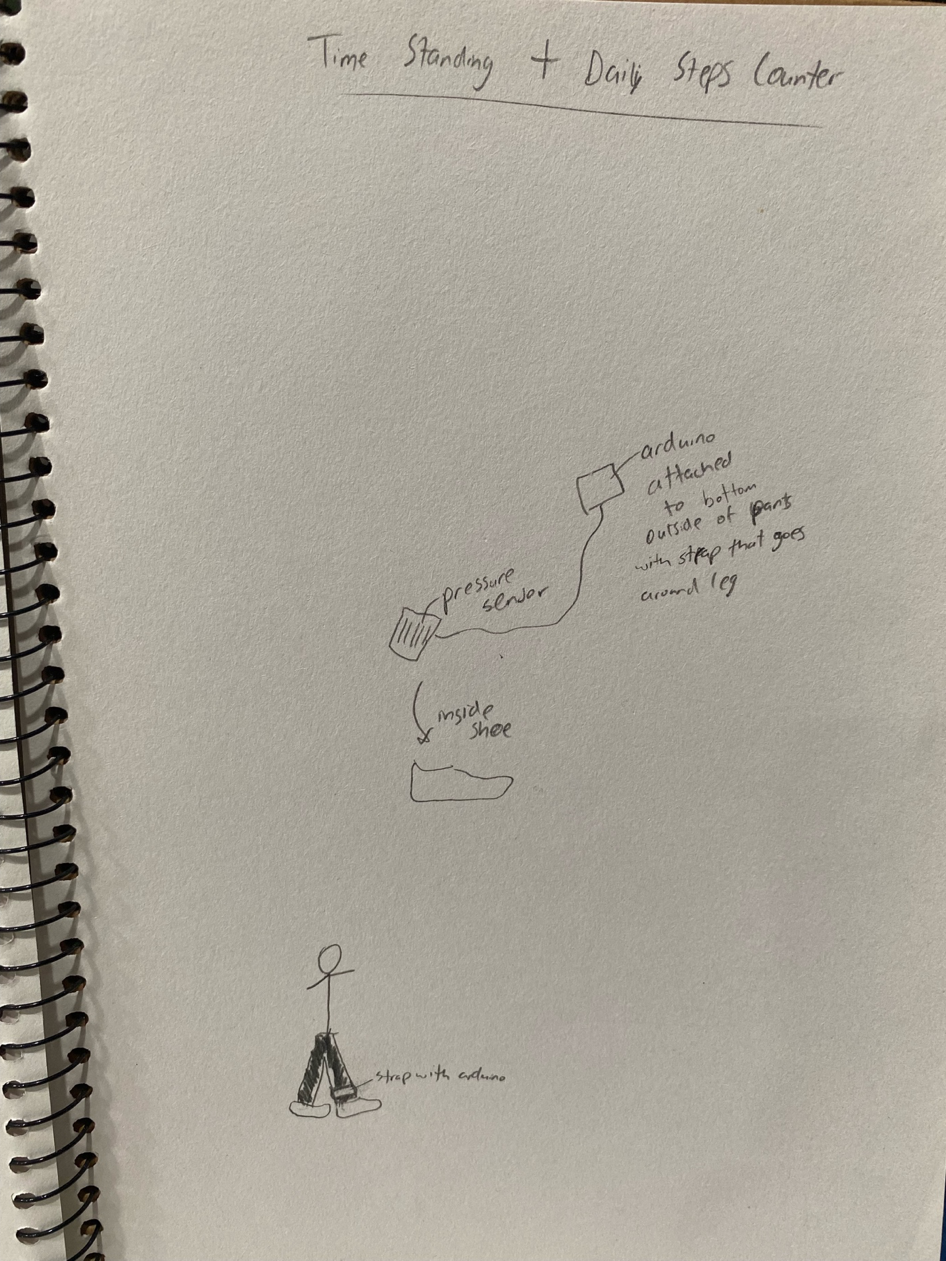 Time Standing + Daily Steps Counter
arduino
attached
to bottom
outside of pants
with strap that goes
around leg
pressure
sensor
inside
shoe
strap with arduino